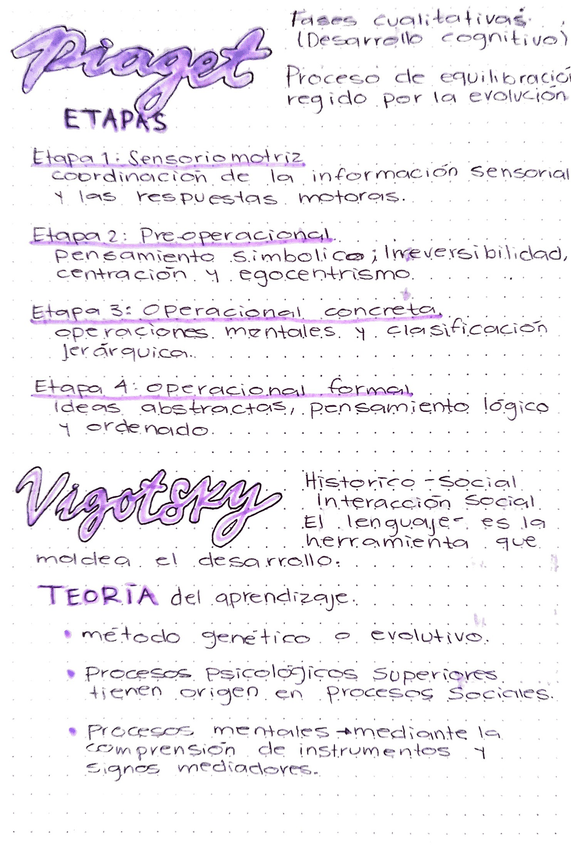 Piaget
Fases cualitativas
(Desarrollo cognitivo)
Proceso de equilibració
regido por la evolución
ETAPAS
Etapa 1: Sensoriomotriz
coordinación de la información sensorial
y las respuestas motoras.
Etapa 2: Pre-operacional
pensamiento simbolico; Irreversibilidad,
centración y egocentrismo.
Etapa 3: Operacional concreta
operaciones mentales y clasificación
jerárquica.
Etapa 4: operacional formal
Ideas abstractas, pensamiento lógico
y ordenado.
Vigotsky
Historico-Social
Interacción Social
El lenguaje es la
herramienta que
moldea el desarrollo.
TEORÍA del aprendizaje.
• método genético o evolutivo.
• Procesos Psicológicos Superiores
tienen origen en Procesos Sociales.
• Procesos mentales → mediante la
comprensión de instrumentos y
signos mediadores.